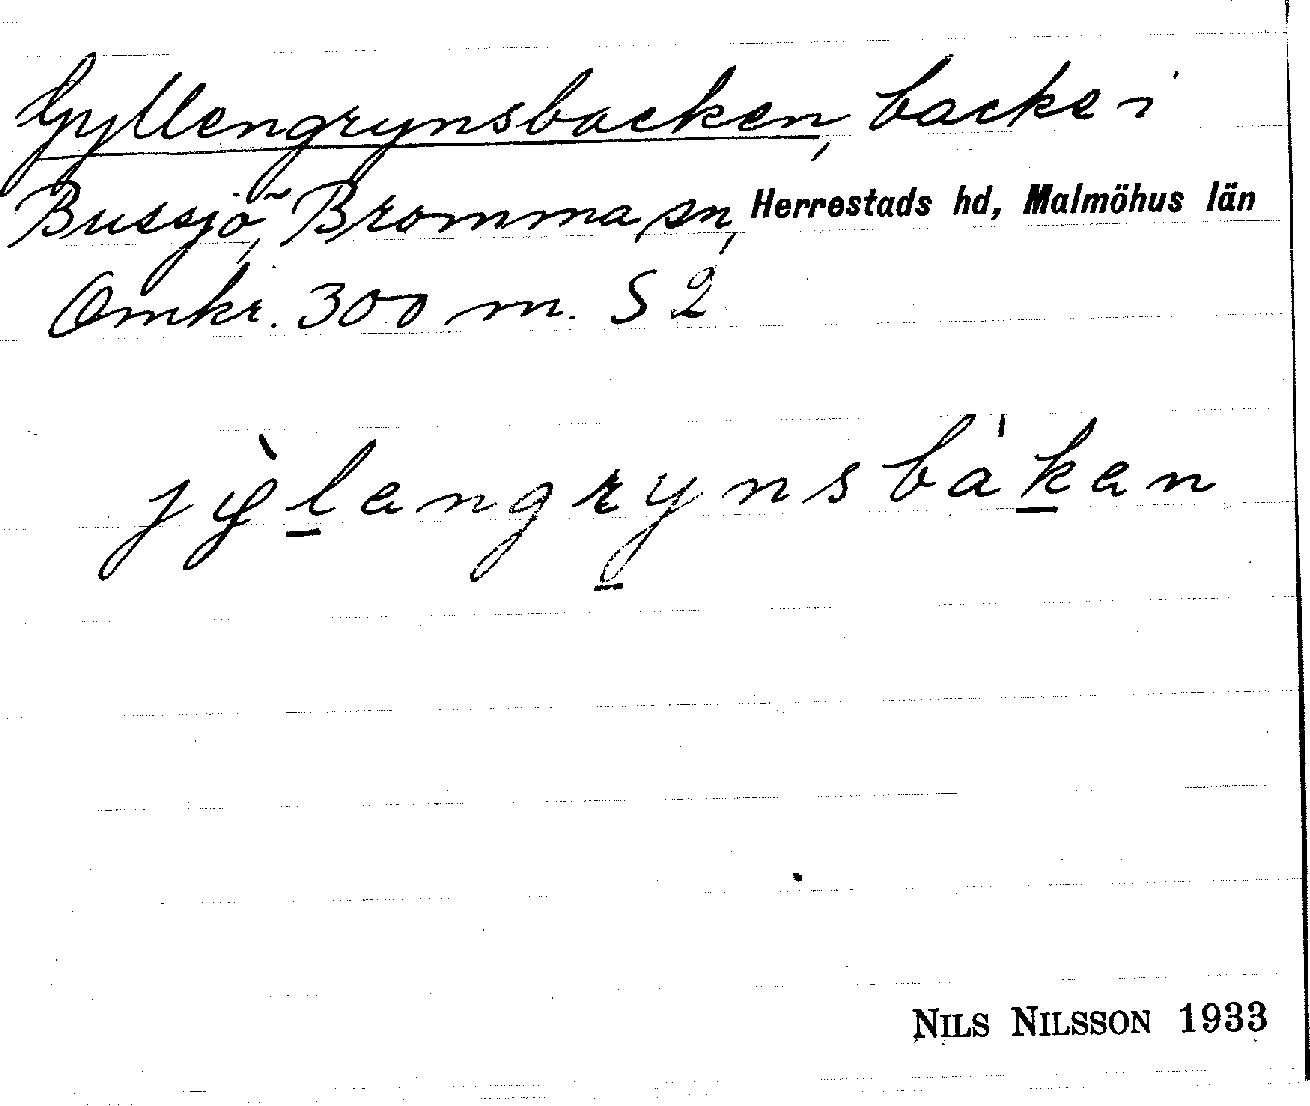 Gyllengrynsbacken, backe i
Bussjö, Bromma sn, Herrestads hd, Malmöhus län
Omkr. 300 m. S 2
jỳlengrynsbákan
NILS NILSSON 1933